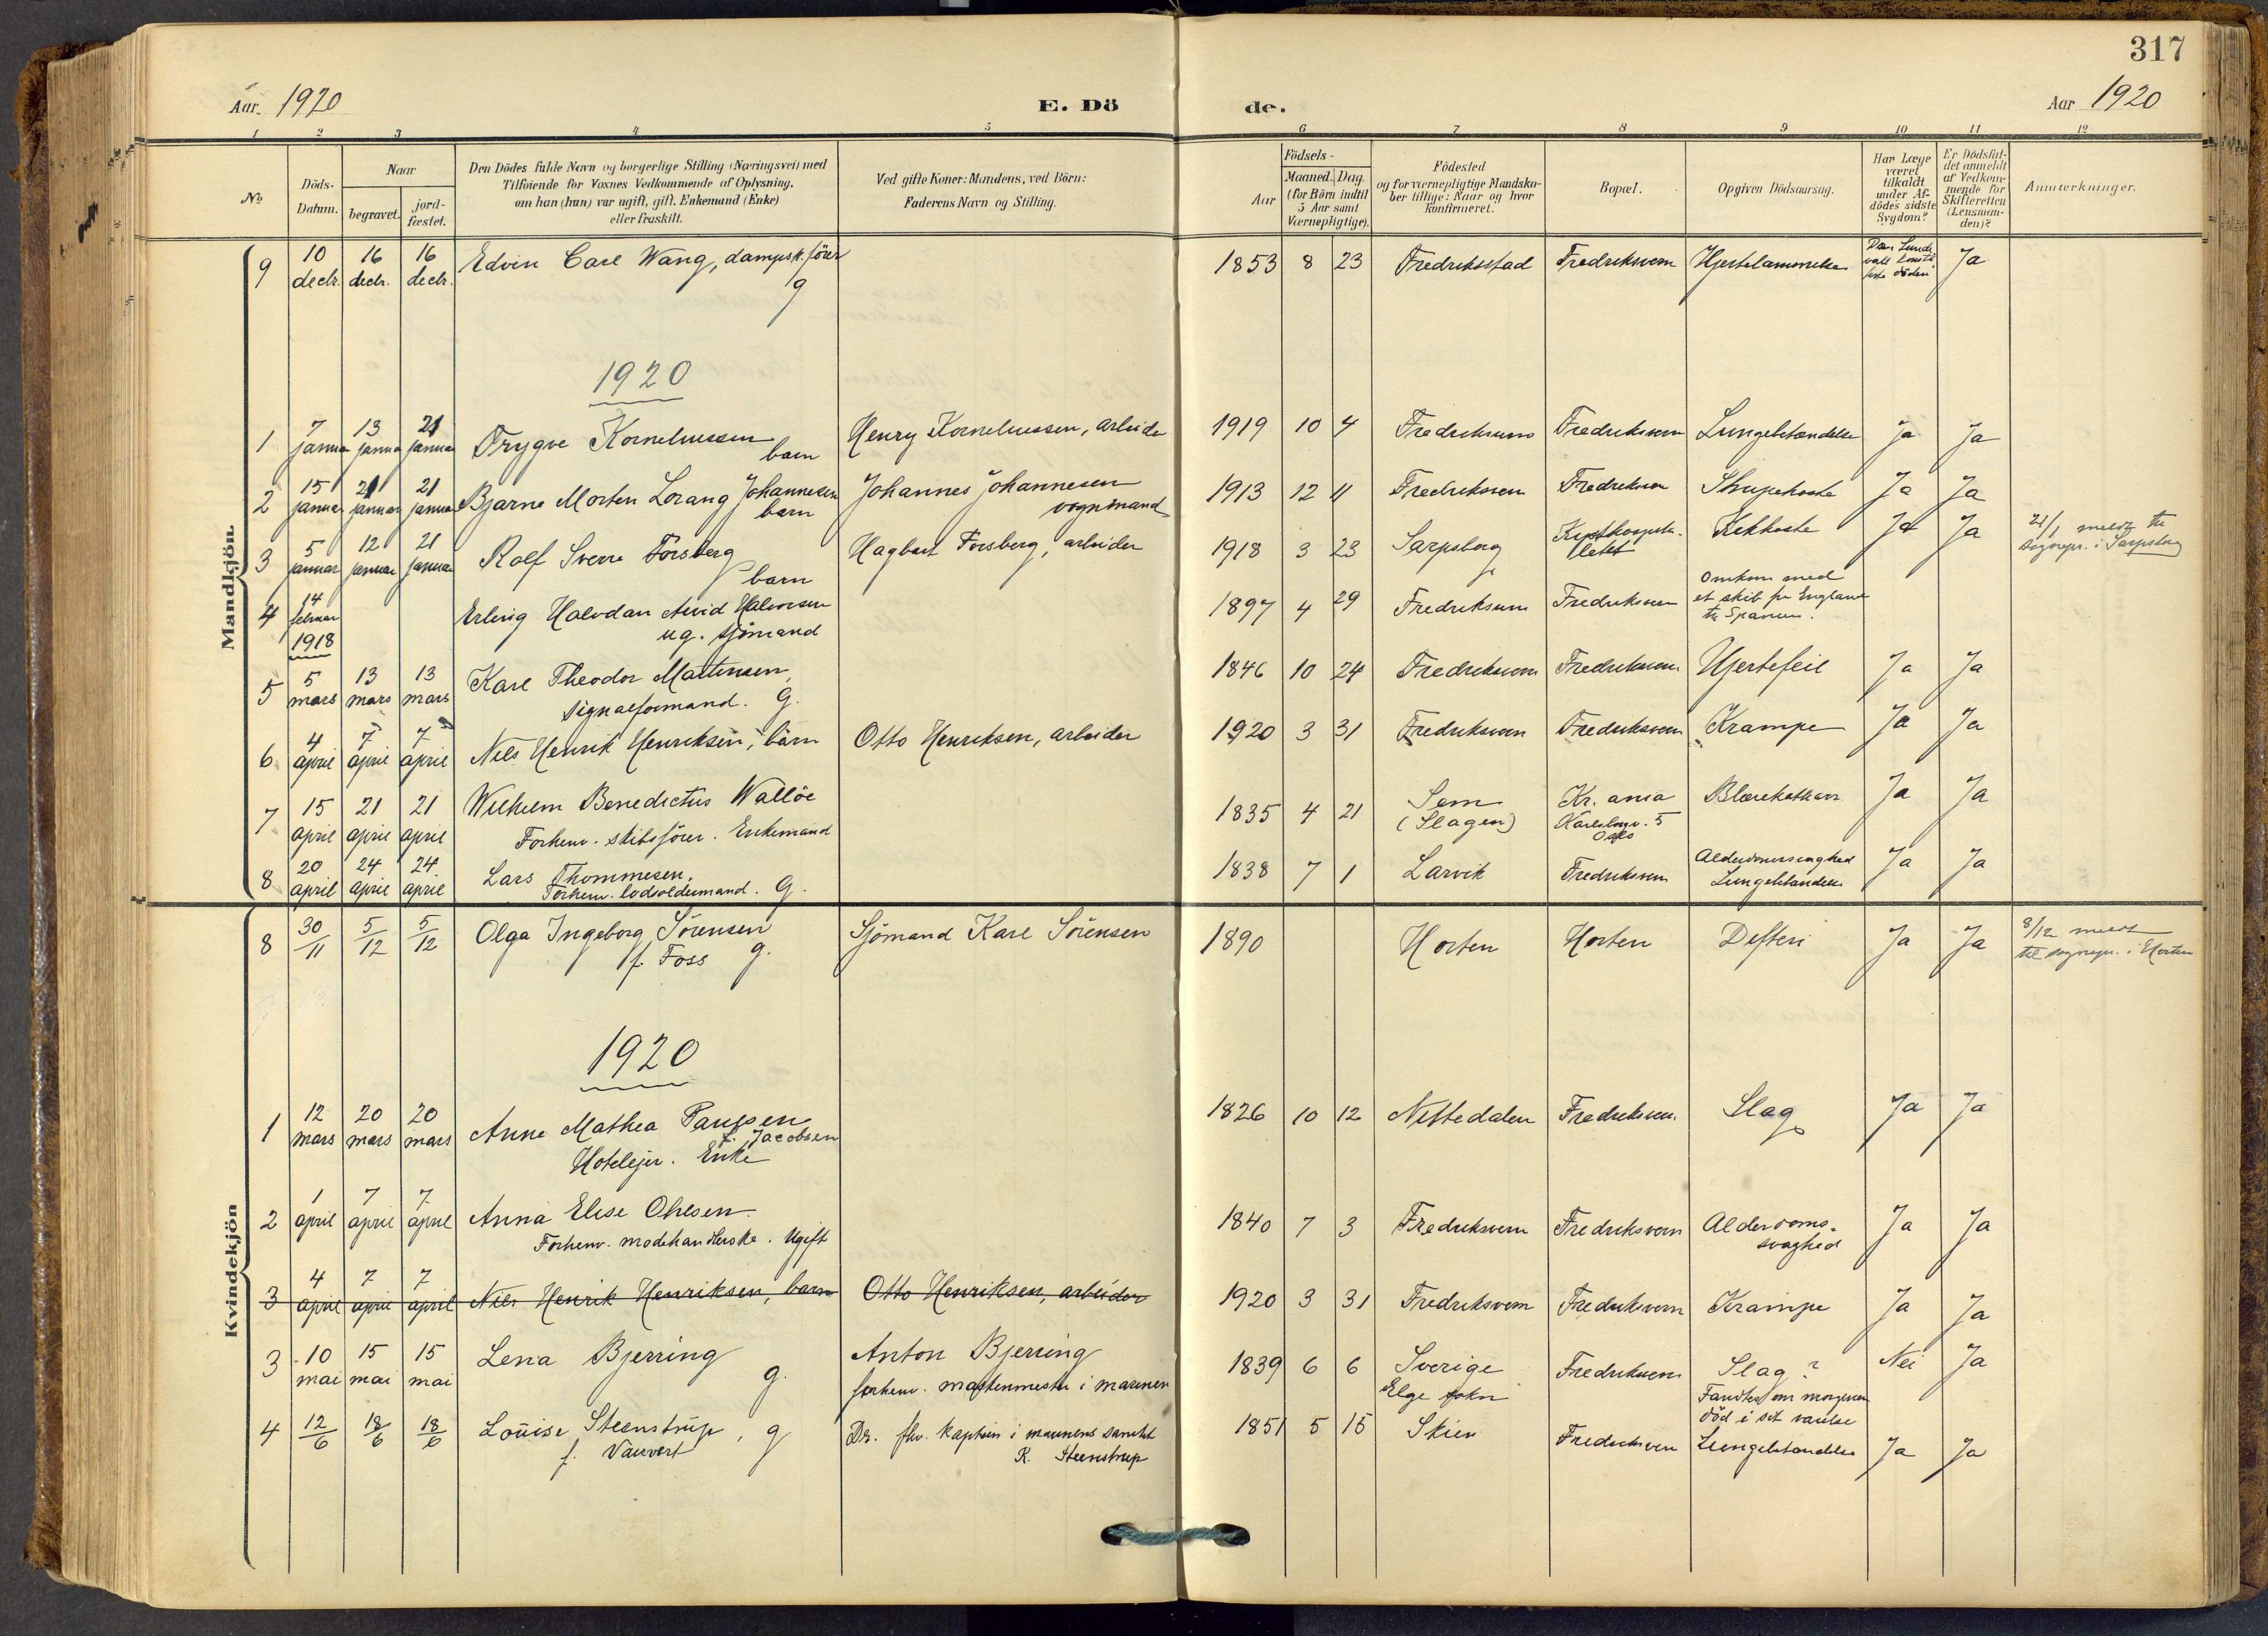 317
Aar. 1920 E. Dö de. Aar 1920
1 2 3 4 5 6 7 8 9 10 11 12
No
Döds-Datum.
Naar
begravet.
jord-fæstet.
Den Dödes fulde Navn og borgerlige Stilling (Næringsvei) med
Tilföiende for Voxnes Vedkommende af Oplysning,
om han (hun) var ugift, gift, Enkemand (Enke)
eller fraskilt.
Ved gifte Koner: Mandens, ved Börn:
Faderens Navn og Stilling.
Födsels-
Aar
Maaned. Dag.
(for Börn indtil
5 Aar samt
Værnepligtige).
Födested
og for værnepligtige Mandska-
ber tillige: Naar og hvor
konfirmeret.
Bopæl.
Opgiven Dödsaarsag.
Har Læge
været
tilkaldt
under Af-
dödes sidste
Sygdom?
Er Dödsfal-
det anmeldt
af Vedkom-
mende for
Skifteretten
(Lensman-
den)?
Anmærkninger.
Mandkjön.
9 10 decbr. 16 decbr. 16 decbr. Edvin Carl Wang, dampsk.förer g 1853 8 23 Fredriksstad Fredriksvern Hjertelammelse Ja
1920
1 7 januar 13 januar 21 januar Trygve Korneliussen barn Henry Korneliussen, arbeider 1919 10 4 Fredriksvern Fredriksvern Lungebetændelse Ja Ja
2 15 januar 21 januar 21 januar Bjarne Morten Lorang Johannesen barn Johannes Johannesen vognmand 1913 12 11 Fredriksvern Fredriksvern Strupehoste Ja Ja
3 5 januar 12 januar 21 januar Rolf Sverre Forsberg barn Hagbart Forsberg, arbeider 1918 3 23 Sarpsborg Kysthospitalet Kikhoste Ja Ja 21/1 meldt til sognepr. i Sarpsborg
4 14 februar 1918 Erling Halvdan Arvid Halvorsen ug. sjömand 1897 4 29 Fredriksvern Fredriksvern Omkom med et skib fra England til Spanien.
5 5 mars 13 mars 13 mars Karl Theodor Mathisen, signalformand. G. 1846 10 24 Fredriksvern Fredriksvern Hjertefeil Ja Ja
6 4 april 7 april 7 april Nils Henrik Henriksen, barn Otto Henriksen, arbeider 1920 3 31 Fredriksvern Fredriksvern Krampe Ja Ja
7 15 april 21 april 21 april Wilhelm Benedictus Wallöe Forhenv. skibsförer. Enkemand 1835 4 21 Sem (Slagen) Kr.ania Karlsborgv. 5 Blærekatharr Ja Ja
8 20 april 24 april 24 april Lars Thommesen, Forhenv. lodsoldermand. G. 1838 7 1 Larvik Fredriksvern Alderdomssvaghed Lungebetændelse Ja Ja
Kvindekjön
8 30/11 5/12 5/12 Olga Ingeborg Sörensen f. Foss g. Sjömand Karl Sörensen 1890 Horten Horten Difteri Ja Ja 8/12 meldt til sognepr. i Horten
1920
1 12 mars 20 mars 20 mars Anne Mathea Paulsen f. Jacobsen Hotelejer. Enke 1826 10 12 Nittedalen Fredriksvern. Slag Ja Ja
2 1 april 7 april 7 april Anna Elise Ohlsen. Forhenv. modehandlerske. Ugift 1840 7 3 Fredriksvern Fredriksvern Alderdoms-svaghed Ja Ja
3 4 april 7 april 7 april Nils Henrik Henriksen, barn Otto Henriksen, arbeider 1920 3 31 Fredriksvern Fredriksvern Krampe Ja Ja
3 10 mai 15 mai 15 mai Lena Bjerring g. Anton Bjerring forhenv. maskinmester i marinen 1839 6 6 Sverige Elge sokn Fredriksvern Slag? Fandtes om morgenen död i sit værelse Nei Ja
4 12/6 18/6 18/6 Louise Steenstrup, g f. Vauvert Dr. fhv. kaptein i marinens sanitet R. Steenstrup 1851 5 15 Skien Fredriksvern Lungebetændelse Ja Ja